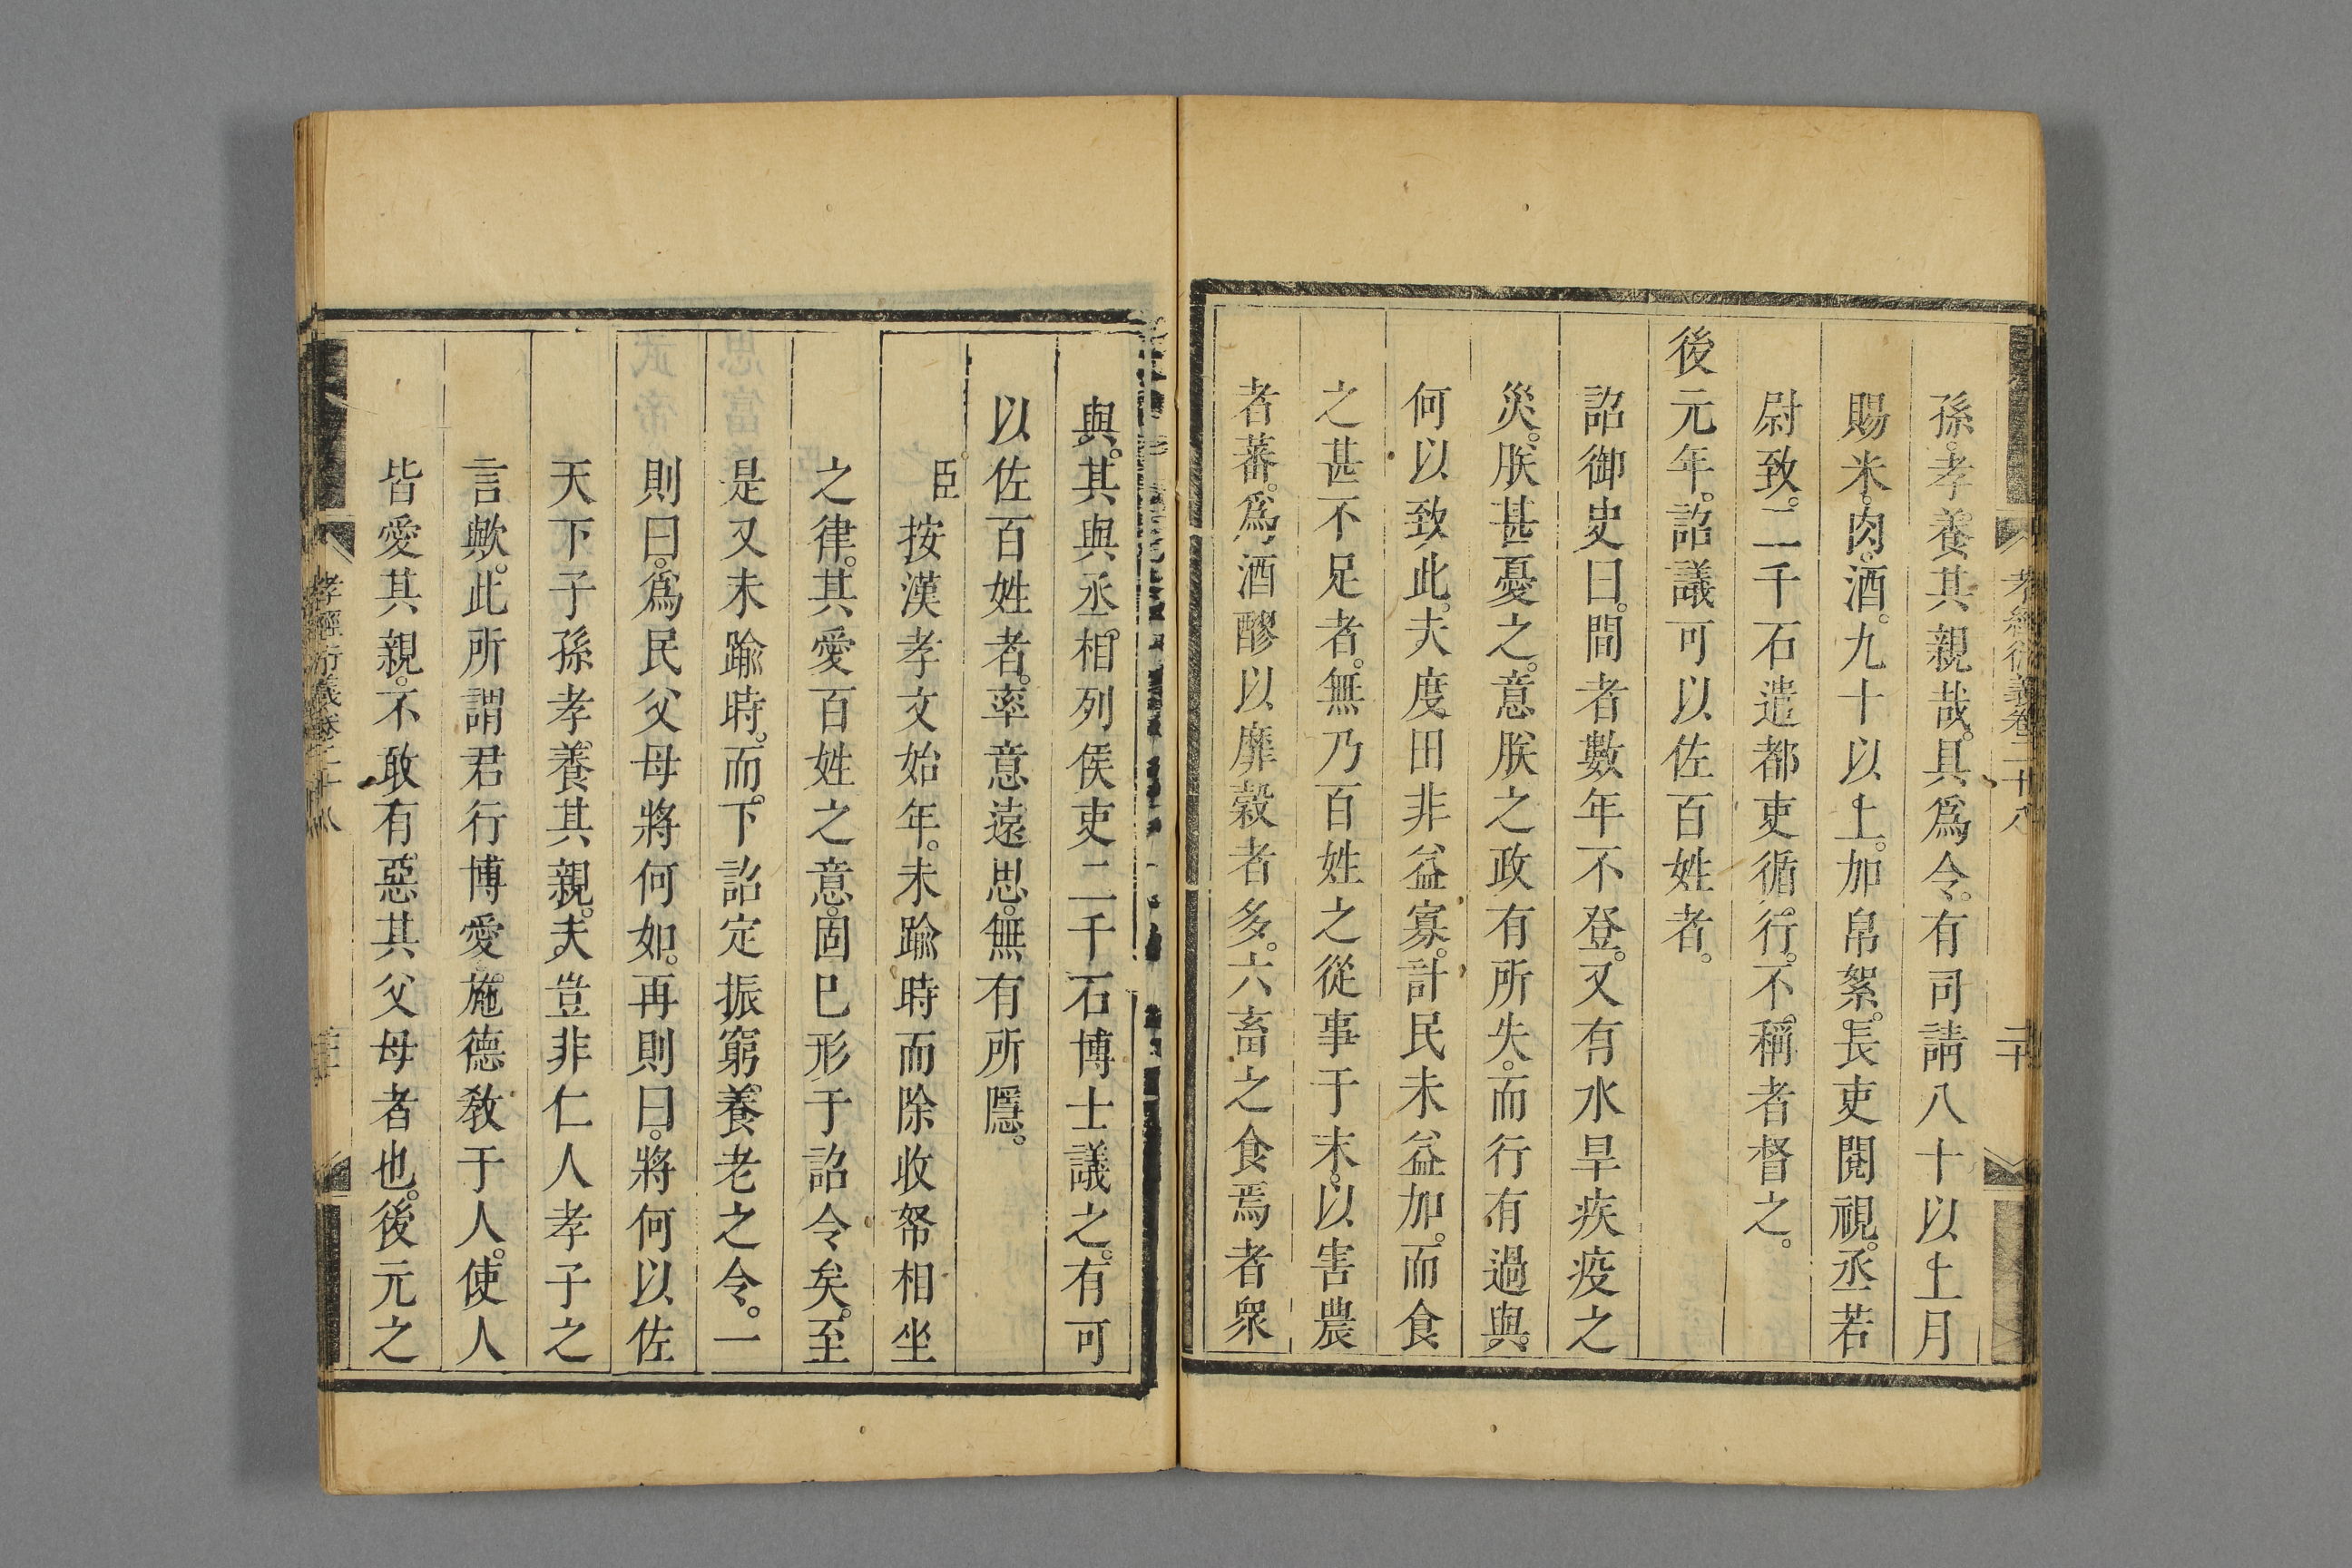 孝經衍義卷二十八
二十
孫。孝養其親哉。具爲令。有司請八十以上月
賜米。肉。酒。九十以上。加帛絮。長吏閱視。丞若
尉致。二千石遣都吏循行。不稱者督之。
後元年。詔議可以佐百姓者。
詔御史曰。間者數年不登。又有水旱疾疫之
災。朕甚憂之。意朕之政有所失。而行有過與。
何以致此。夫度田非益寡。計民未益加。而食
之甚不足者。無乃百姓之從事于末。以害農
者蕃。爲酒醪以靡穀者多。六畜之食焉者衆
與。其與丞。相列侯吏二千石博士議之。有可
以佐百姓者。率意遠思。無有所隱。
臣按漢孝文始年。未踰時而除收帑相坐
之律。其愛百姓之意。固已形于詔令矣。至
是又未踰時。而下詔定振窮養老之令。一
則曰。爲民父母將何如。再則曰。將何以佐
天下子孫孝養其親。夫豈非仁人孝子之
言歟。此所謂君行博愛。施德敎于人。使人
皆愛其親。不敢有惡其父母者也。後元之
孝經衍義卷二十八